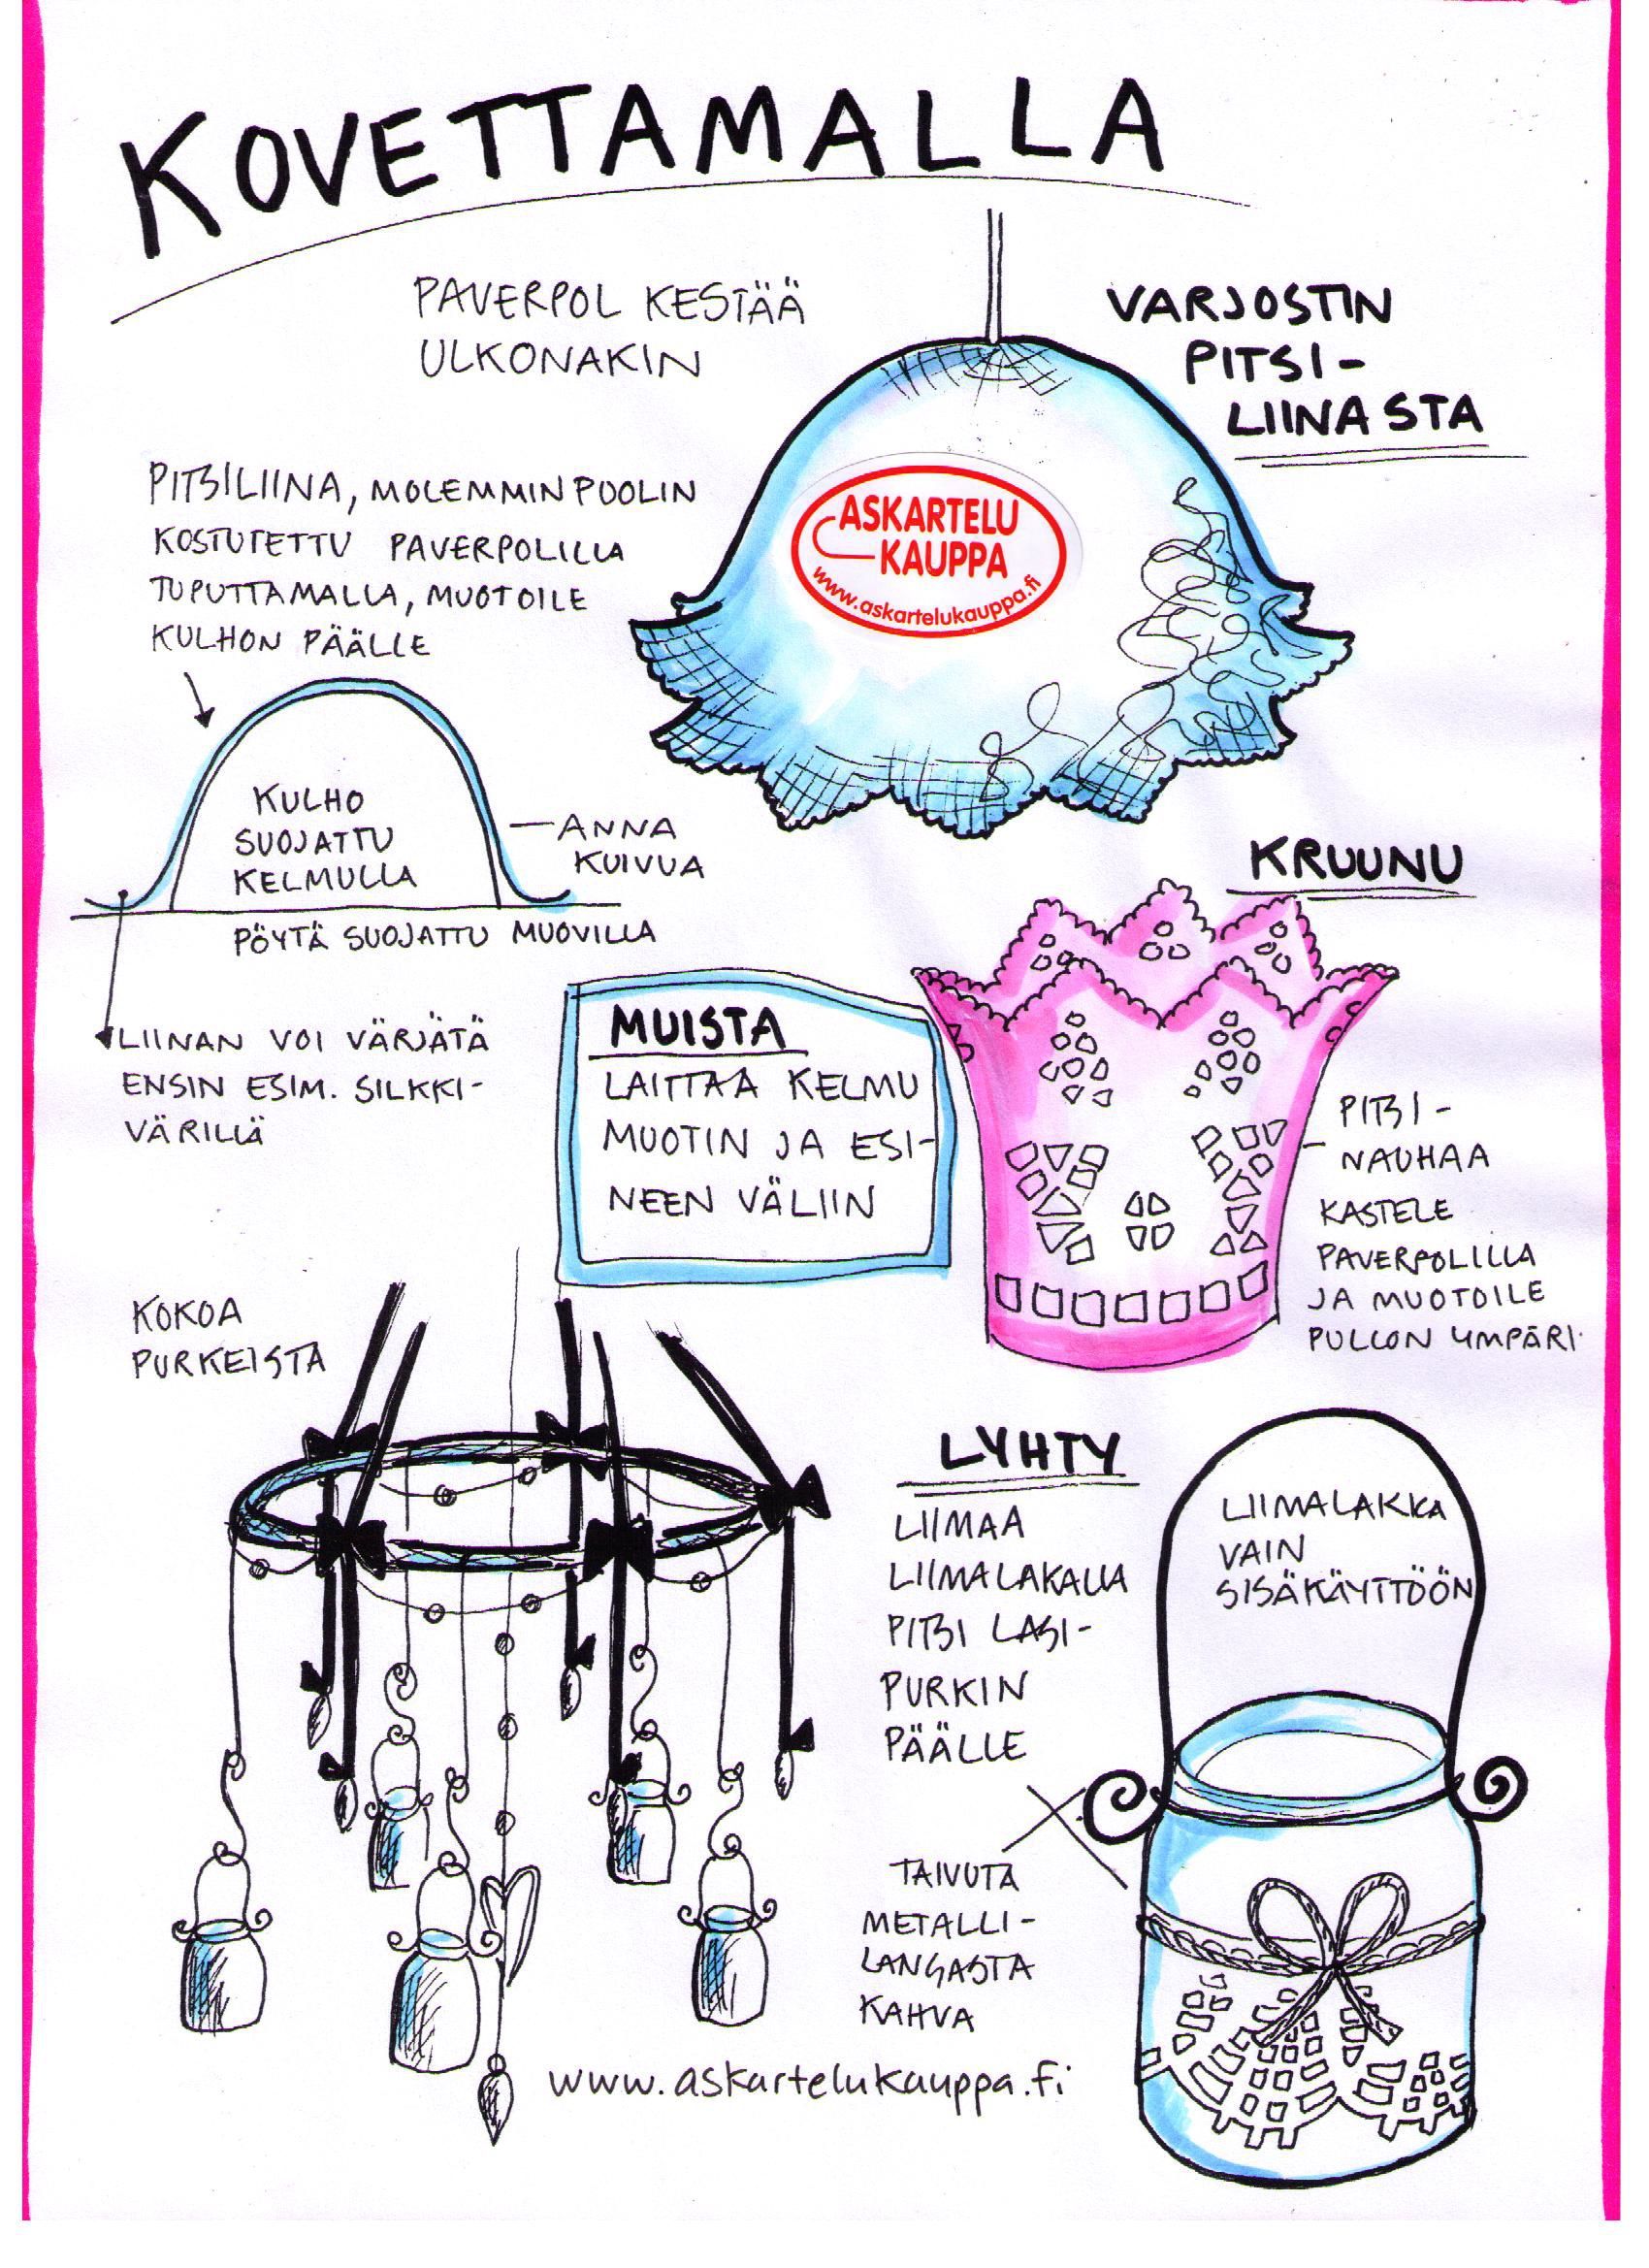 KOVETTAMALLA
PAVERPOL KESTÄÄ
ULKONAKIN
VARJOSTIN
PITSI-
LIINASTA
ASKARTELU
KAUPPA
www.askartelukauppa.fi
PITSILIINA, MOLEMMIN PUOLIN
KOSTUTETTU PAVERPOLILLA
TUPUTTAMALLA, MUOTOILE
KULHON PÄÄLLE
KULHO
SUOJATTU
KELMULLA
ANNA
KUIVUA
PÖYTÄ SUOJATTU MUOVILLA
LIINAN VOI VÄRJÄTÄ
ENSIN ESIM. SILKKI-
VÄRILLÄ
MUISTA
LAITTAA KELMU
MUOTIN JA ESI-
NEEN VÄLIIN
KRUUNU
PITSI-
NAUHAA
KASTELE
PAVERPOLILLA
JA MUOTOILE
PULLON YMPÄRI
KOKOA
PURKEISTA
LYHTY
LIIMAA
LIIMALAKALLA
PITSI LASI-
PURKIN
PÄÄLLE
LIIMALAKKA
VAIN
SISÄKÄYTTÖÖN
TAIVUTA
METALLI-
LANGASTA
KAHVA
www.askartelukauppa.fi